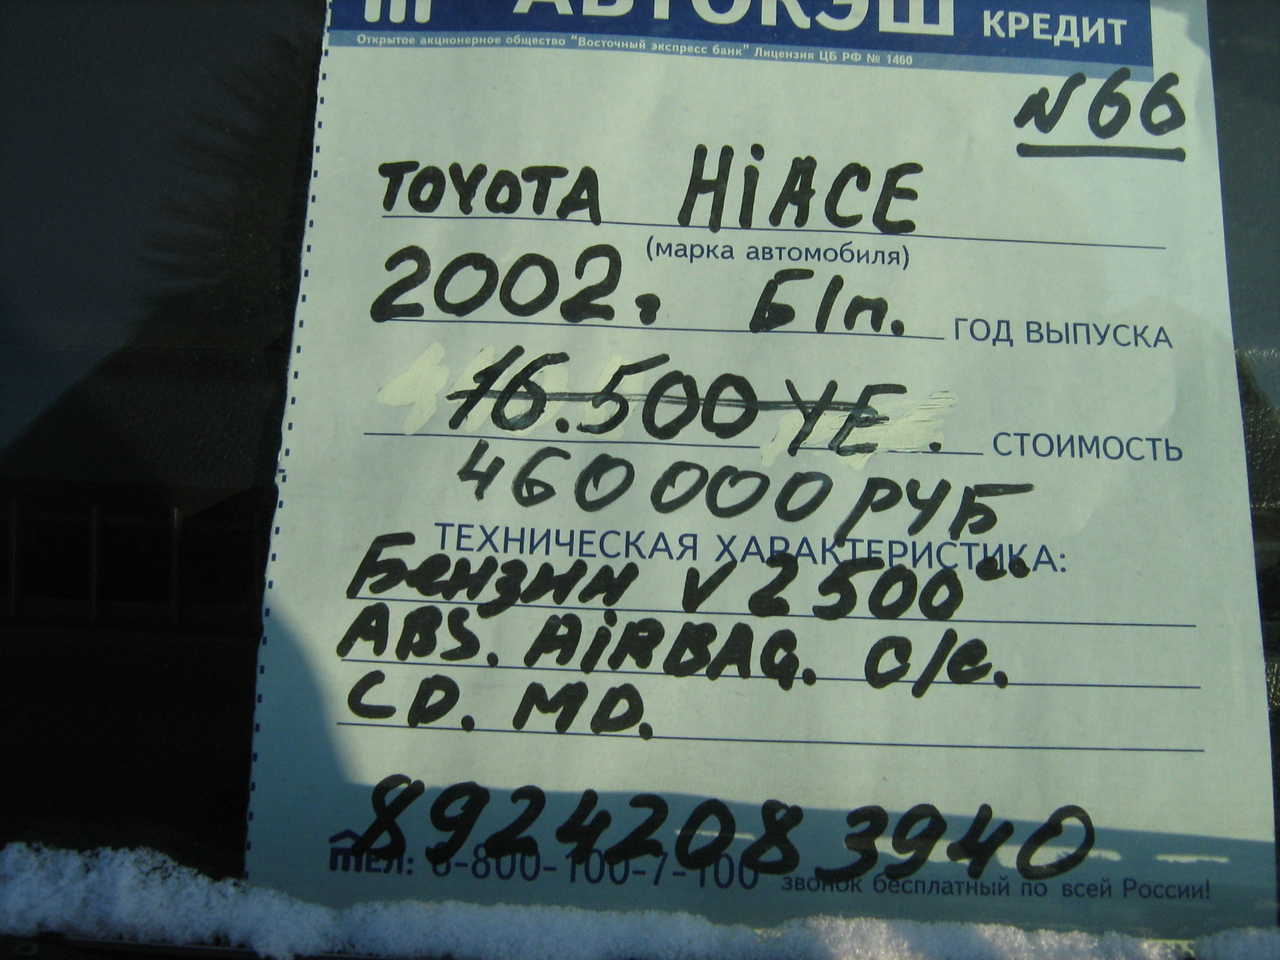 АВТОКЭШ КРЕДИТ
Открытое акционерное общество "Восточный экспресс банк" Лицензия ЦБ РФ № 1460
N 66
TOYOTA HiACE
(марка автомобиля)
2002г Б/п. ГОД ВЫПУСКА
16.500 УЕ. СТОИМОСТЬ
460 000 РУБ
ТЕХНИЧЕСКАЯ ХАРАКТЕРИСТИКА:
Бензин V 2500
ABS. AiRBAG. С/С.
CD. MD.
89242083940
ТЕЛ: 8-800-100-7-100 звонок бесплатный по всей России!